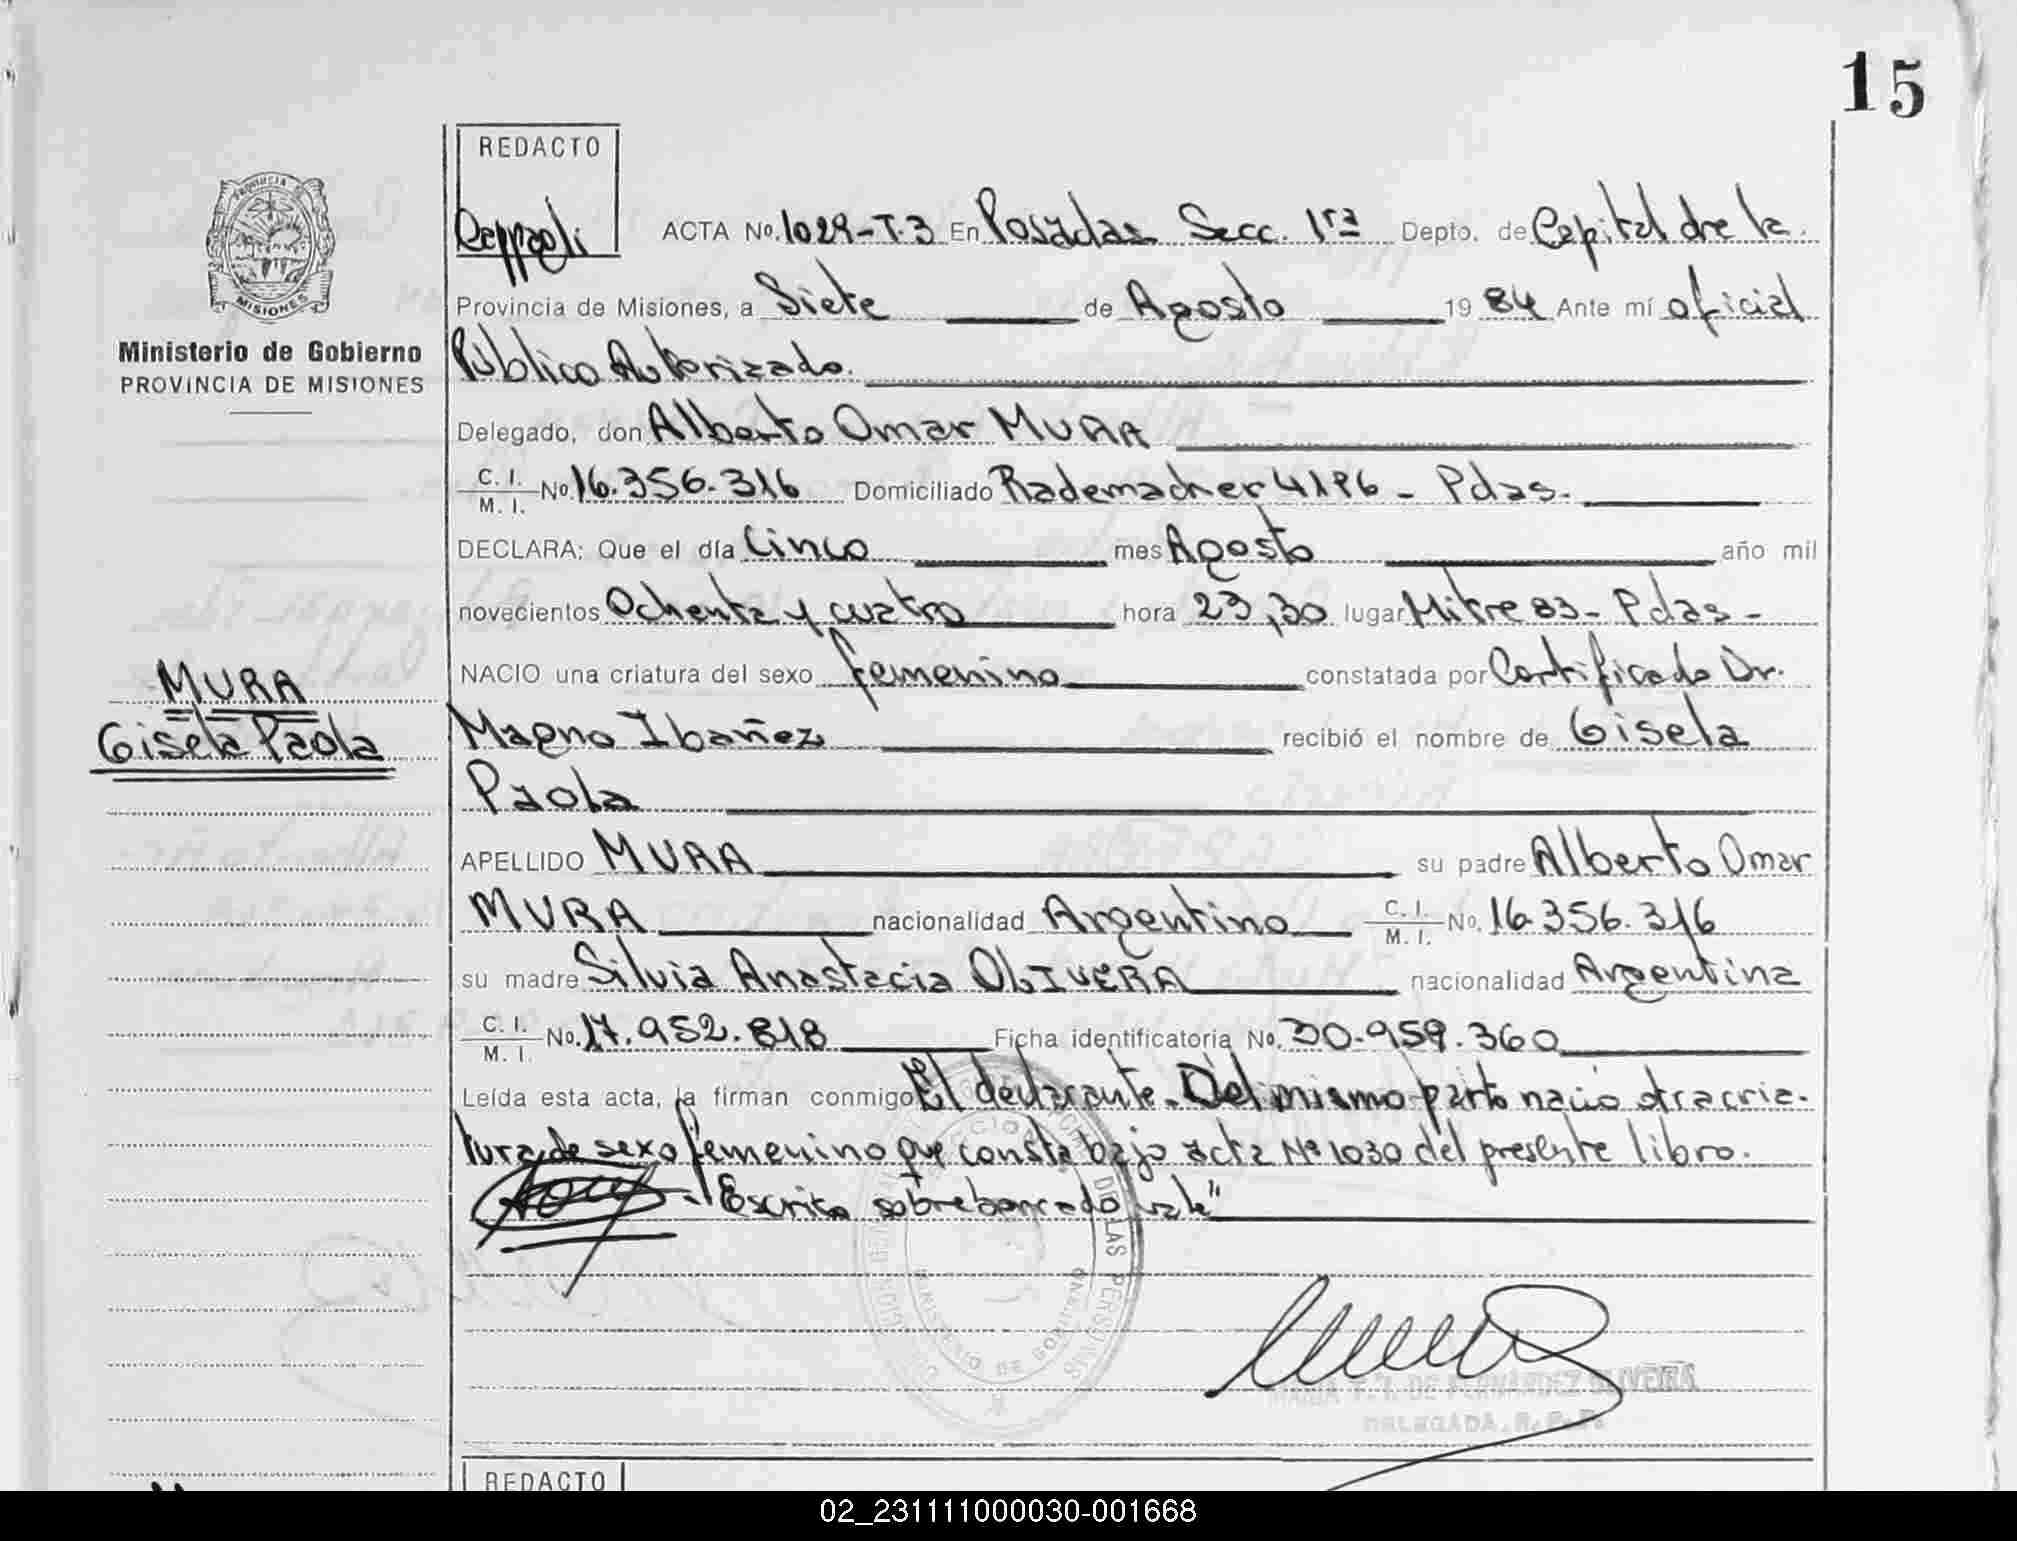 15
REDACTO
ACTA No. 1029-T.3 En Posadas Secc. 1ra Depto. de Capital dre la
Provincia de Misiones, a Siete de Agosto 1984 Ante mí oficial
Público Autorizado.
Ministerio de Gobierno
PROVINCIA DE MISIONES
Delegado, don Alberto Omar MURA
C. I. / M. I. No. 16.356.316 Domiciliado Rademacher 4196 - Pdas.
DECLARA: Que el día Cinco mes Agosto año mil
novecientos Ochenta y cuatro hora 23,30 lugar Mitre 83 - Pdas -
NACIO una criatura del sexo femenino constatada por Certificado Dr.
MURA
Gisela Paola
Magno Ibañez recibió el nombre de Gisela
Paola
APELLIDO MURA su padre Alberto Omar
MURA nacionalidad Argentino C. I. / M. I. No. 16.356.316
su madre Silvia Anastacia OLIVERA nacionalidad Argentina
C. I. / M. I. No. 17.952.818 Ficha identificatoria No. 30.959.360
Leída esta acta, la firman conmigo El declarante. Del mismo parto nació otra cria-
tura de sexo femenino que consta bajo acta Nº 1030 del presente libro.
"Escrito sobreborrado vale"
MINISTERIO DE GOBIERNO
DE LAS PERSONAS
DE FERNANDEZ OLIVERA
DELEGADA. R. P. P.
REDACTO
02_231111000030-001668